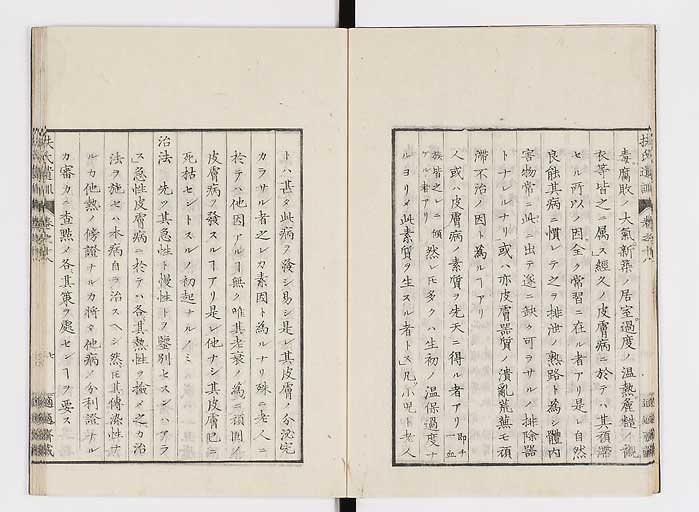 毒腐敗ノ大氣新築ノ居室過度ノ温熱麁糙ノ襯
衣等皆之ニ属ス」經久ノ皮膚病ニ於テハ其頑滯
セル所以ノ因全ク常習ニ在ル者アリ是レ自然
良能其病ニ慣レテ之ヲ排泄ノ熟路ト為シ體内
害物常ニ此ニ出テ遂ニ缺ク可ラサルノ排除器
トナレルナリ」或ハ亦皮膚器質ノ潰亂荒蕪モ頑
滯不治ノ因ト為ルヿアリ
人或ハ皮膚病ノ素質ヲ先天ニ得ル者アリ即チ一血
族皆之レニ傾ケル者アリ然レ𪜈多クハ生初ノ温保過度ナ
ルヨリメ此素質ヲ生スル者トス」凡ソ小児ト老人
扶氏遺訓 卷之十八
適適齋藏
トハ甚タ此病ヲ發シ易シ是レ其皮膚ノ分泌完
カラサル者之レカ素因ト為ルナリ殊ニ老人ニ
於テハ他因アルヿ無ク唯其老衰ノ為ニ頑固ノ
皮膚病ヲ發スルヿアリ是レ他ナシ其皮膚已ニ
死枯セントスルノ初起ナルノミ
治法 先ツ其急性ト慢性トヲ鑒別セスンハアラ
ス」急性皮膚病ニ於テハ各其熱性ヲ撿メ之カ治
法ヲ施セハ本病自ラ治スヘシ然𪜈其傳染性ナ
ルカ他熱ノ徴證ナルカ將タ他病ノ分利證ナル
カ審カニ査點メ各其策ヲ處センヿヲ要ス
扶氏遺訓 卷之十八
七
適適齋藏